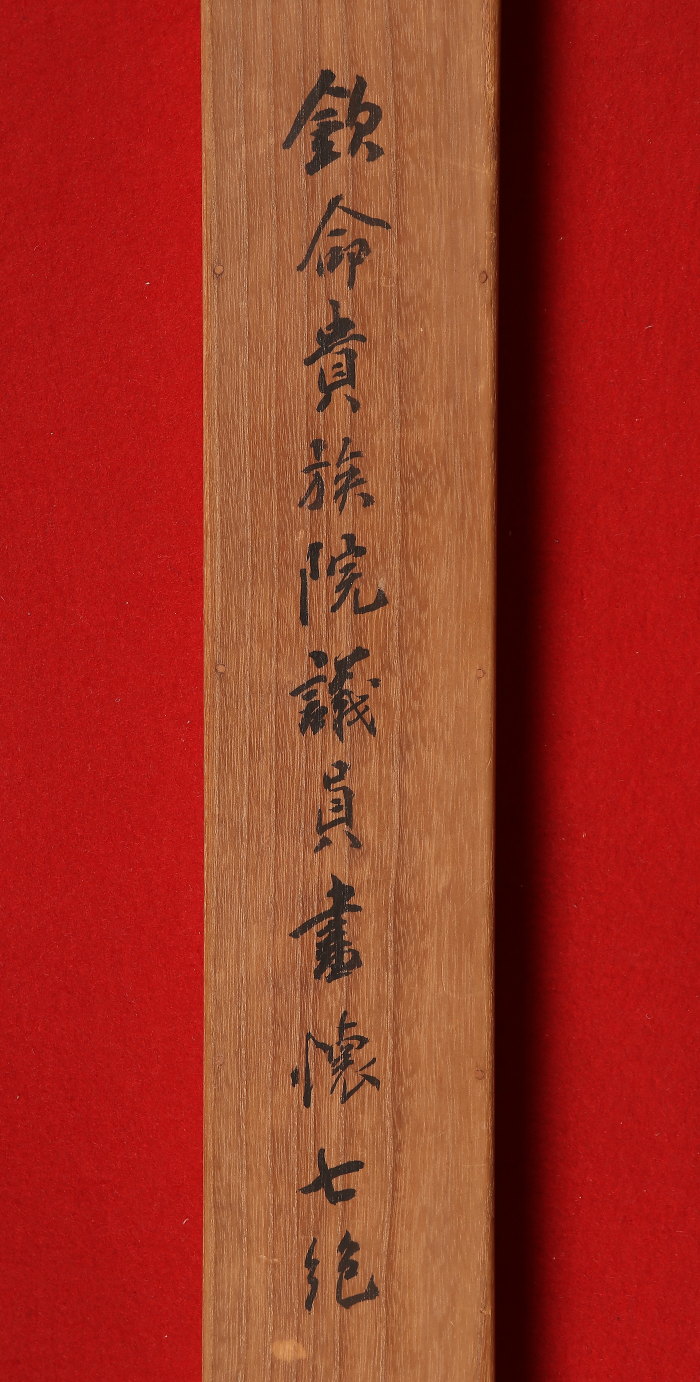 欽命貴族院議員書懐七絶